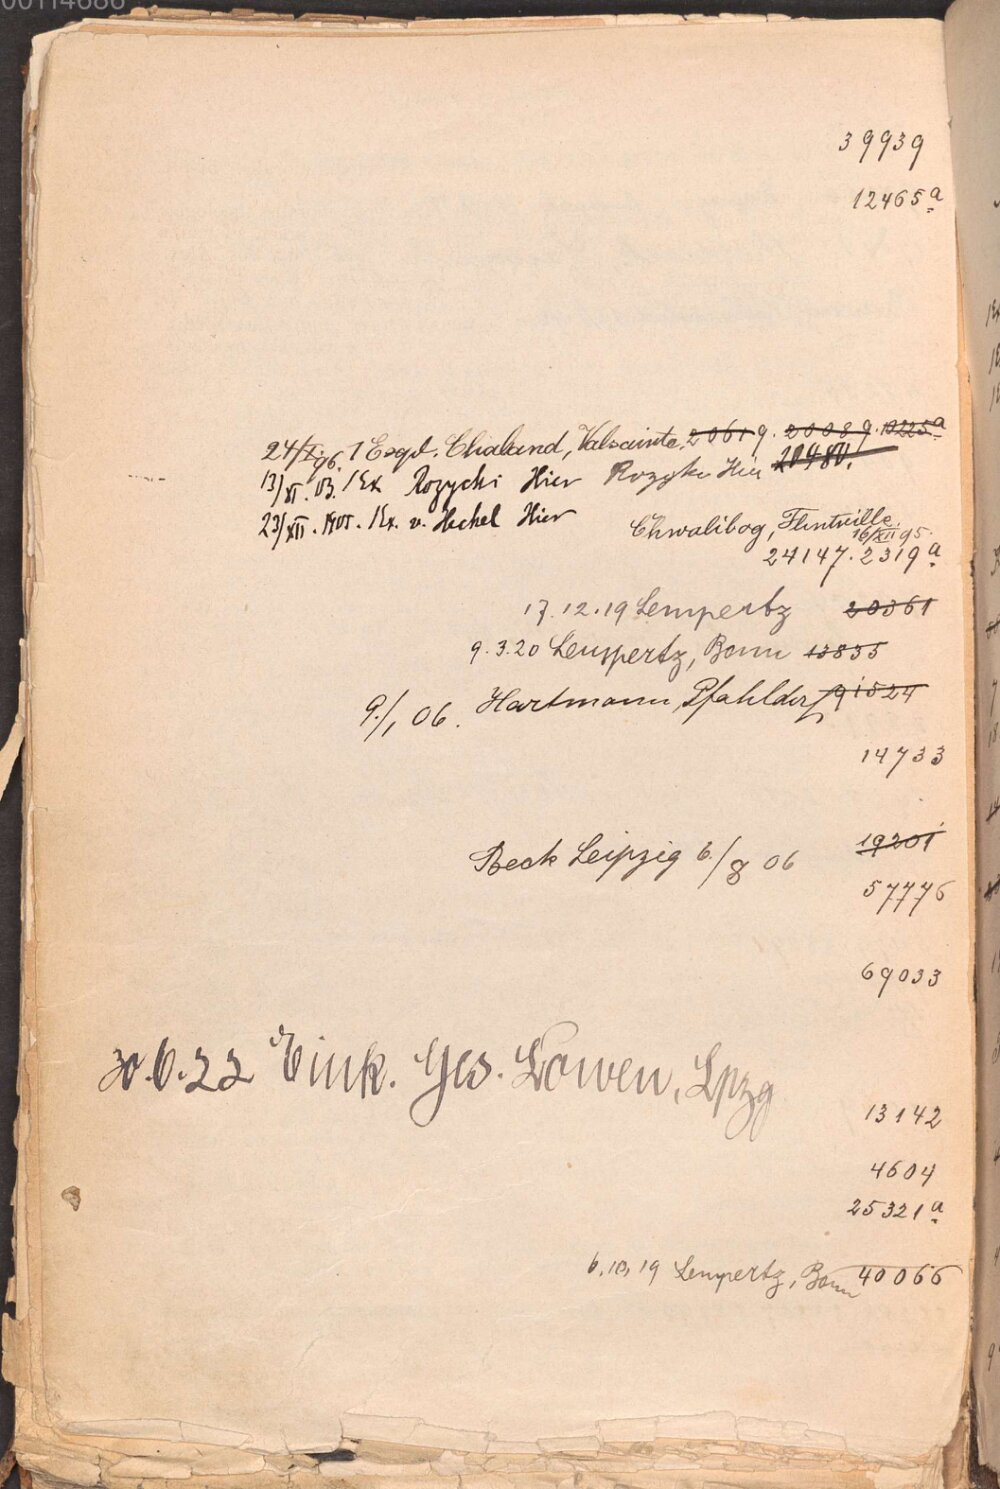 00114686
39939
12465a
24/I.96. 1 Expl. Chaland, Valsainte. 20619. 20089. 10225a
13/XI.03. 1 Ex Rozycki Hier Rozycki Hier 20480.
23/XII.1905. 1 Ex. v. Heckel Hier
Chwalibog, Flintville.
16/XII 95.
24147. 2319a
17.12.19 Lempertz 20361
9.3.20 Lempertz, Bonn 13835
9./1 06. Hartmann, Pfahldorf 91524
14733
19201
Beck Leipzig 6./8 06
57776
69033
30.6.22 Eink. Ges. Löwen, Lpzg
13142
4604
25321a
6.10.19 Lempertz, Bonn 40066